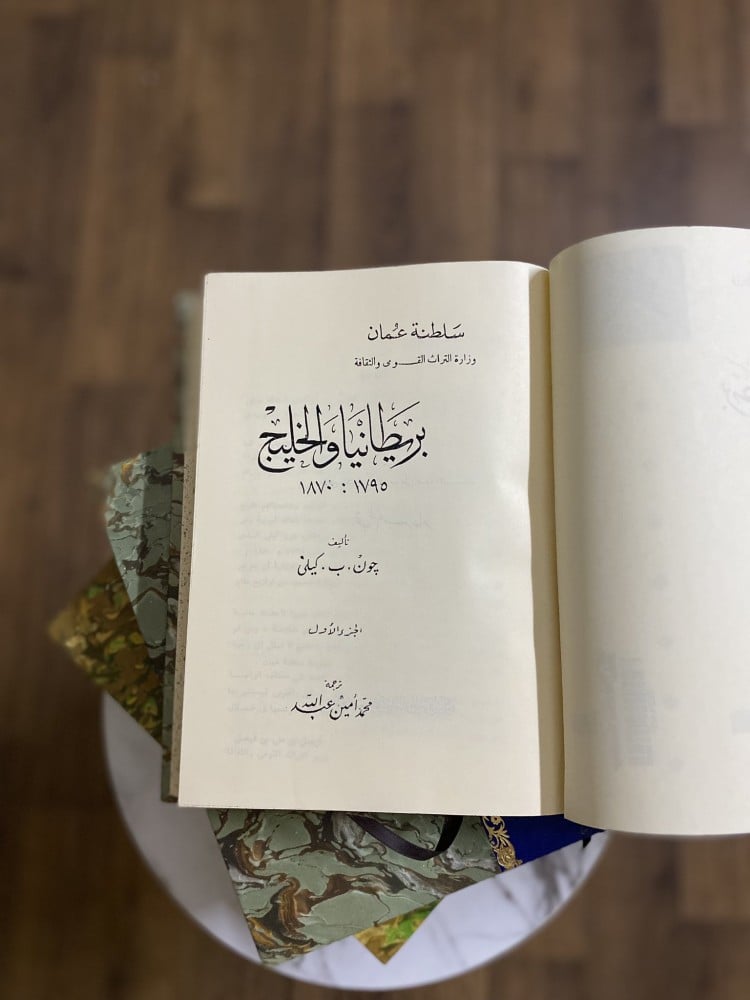 سَلطنة عُمان
وزارة التراث القومى والثقافة
بريطانيا والخليج
١٧٩٥ : ١٨٧٠
تأليف
چون . ب . كيلى
الجزء الأول
ترجمة
محمد أمين عبد الله